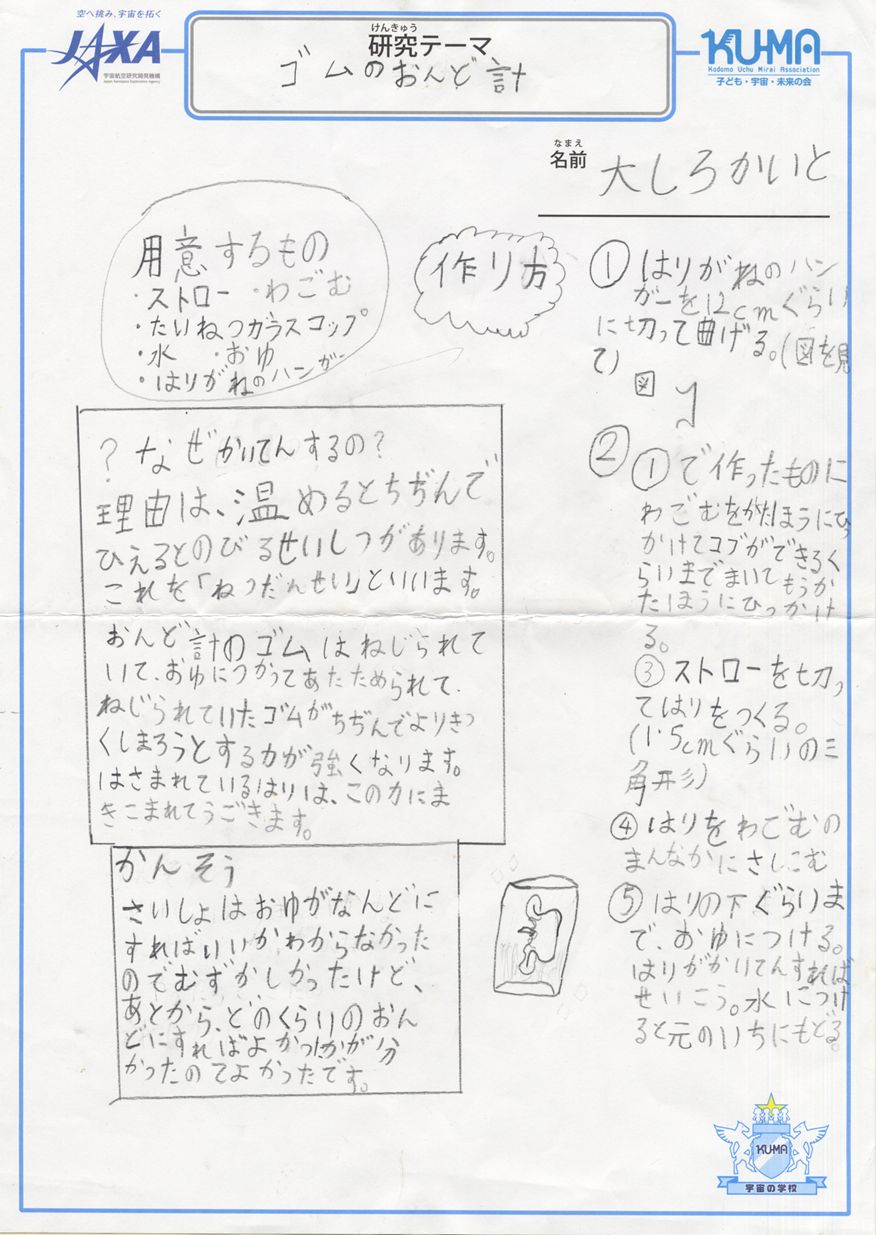 空へ挑み、宇宙を拓く
JAXA
宇宙航空研究開発機構
Japan Aerospace Exploration Agency
けんきゅう
研究テーマ
ゴムのおんど計
KU-MA
Kodomo Uchu Mirai Association
子ども・宇宙・未来の会
なまえ
名前
大しろかいと
用意するもの
・ストロー ・わごむ
・たいねつガラスコップ
・水 ・おゆ
・はりがねのハンガー
作り方
① はりがねのハン
ガーを12cmぐらい
に切って曲げる。(図を見
て)
図
② ①で作ったものに
わごむをかたほうにひっ
かけてコブができるく
らいまでまいてもうか
たほうにひっかけ
る。
③ ストローを切っ
てはりをつくる。
(1.5cmぐらいの三
角形)
④ はりをわごむの
まんなかにさしこむ
⑤ はりの下ぐらいま
で、おゆにつける。
はりがかいてんすれば
せいこう。水につけ
ると元のいちにもどる。
?なぜかいてんするの?
理由は、温めるとちぢんで
ひえるとのびるせいしつがあります。
これを「ねつだんせい」といいます。
おんど計のゴムはねじられて
いて、おゆにつかってあたためられて、
ねじられていたゴムがちぢんでよりきつ
くしまろうとする力が強くなります。
はさまれているはりは、この力にま
きこまれてうごきます。
かんそう
さいしょはおゆがなんどに
すればいいかわからなかった
のでむずかしかったけど、
あとから、どのくらいのおん
どにすればよかったかが分
かったのでよかったです。
KU-MA
宇宙の学校